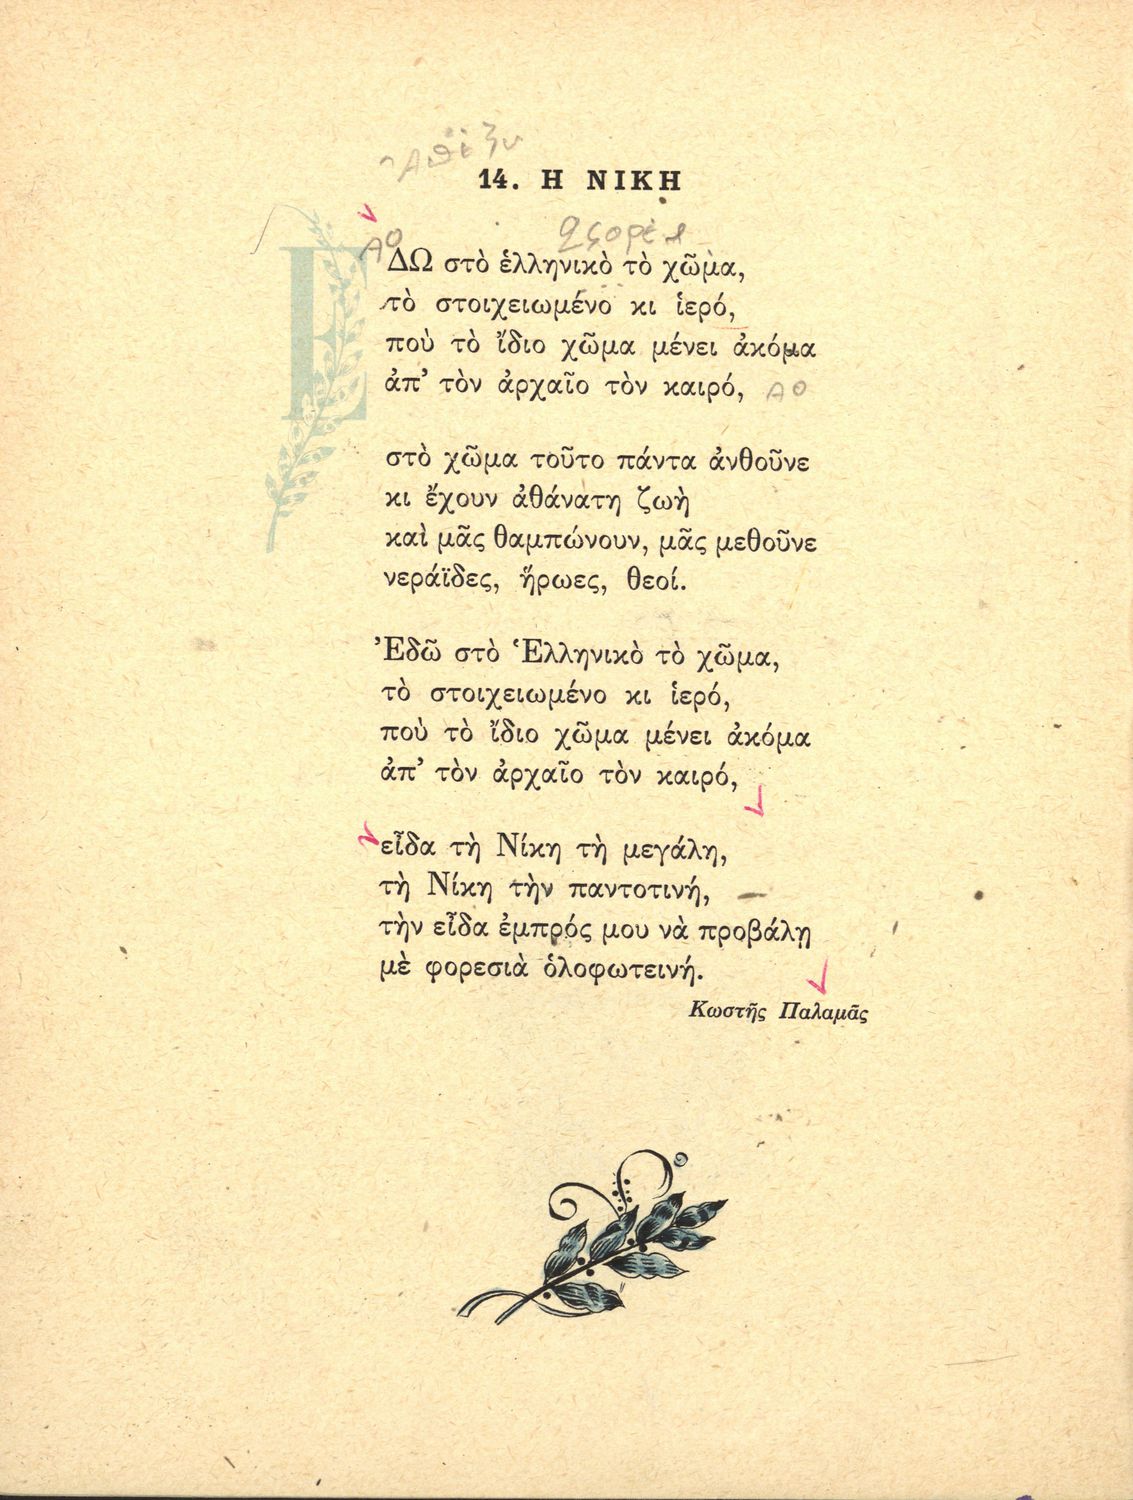 14. Η ΝΙΚΗ
ΕΔΩ στὸ ἑλληνικὸ τὸ χῶμα,
τὸ στοιχειωμένο κι ἱερό,
ποὺ τὸ ἴδιο χῶμα μένει ἀκόμα
ἀπ’ τὸν ἀρχαῖο τὸν καιρό,
στὸ χῶμα τοῦτο πάντα ἀνθοῦνε
κι ἔχουν ἀθάνατη ζωὴ
καὶ μᾶς θαμπώνουν, μᾶς μεθοῦνε
νεράϊδες, ἥρωες, θεοί.
Ἐδῶ στὸ Ἑλληνικὸ τὸ χῶμα,
τὸ στοιχειωμένο κι ἱερό,
ποὺ τὸ ἴδιο χῶμα μένει ἀκόμα
ἀπ’ τὸν ἀρχαῖο τὸν καιρό,
εἶδα τὴ Νίκη τὴ μεγάλη,
τὴ Νίκη τὴν παντοτινή,
τὴν εἶδα ἐμπρός μου νὰ προβάλῃ
μὲ φορεσιὰ ὁλοφωτεινή.
Κωστῆς Παλαμᾶς